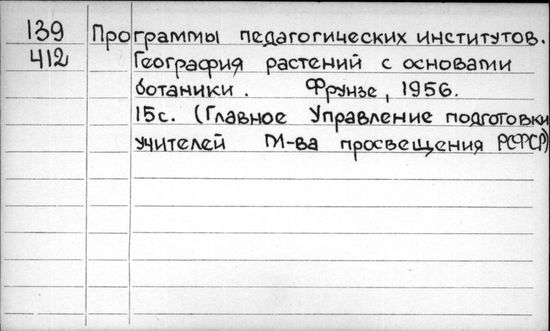 139 Программы педагогических институтов.
412 География растений с основами
ботаники. Фрунзе, 1956.
15с. (Главное Управление подготовки
учителей М-ва просвещения РСФСР)